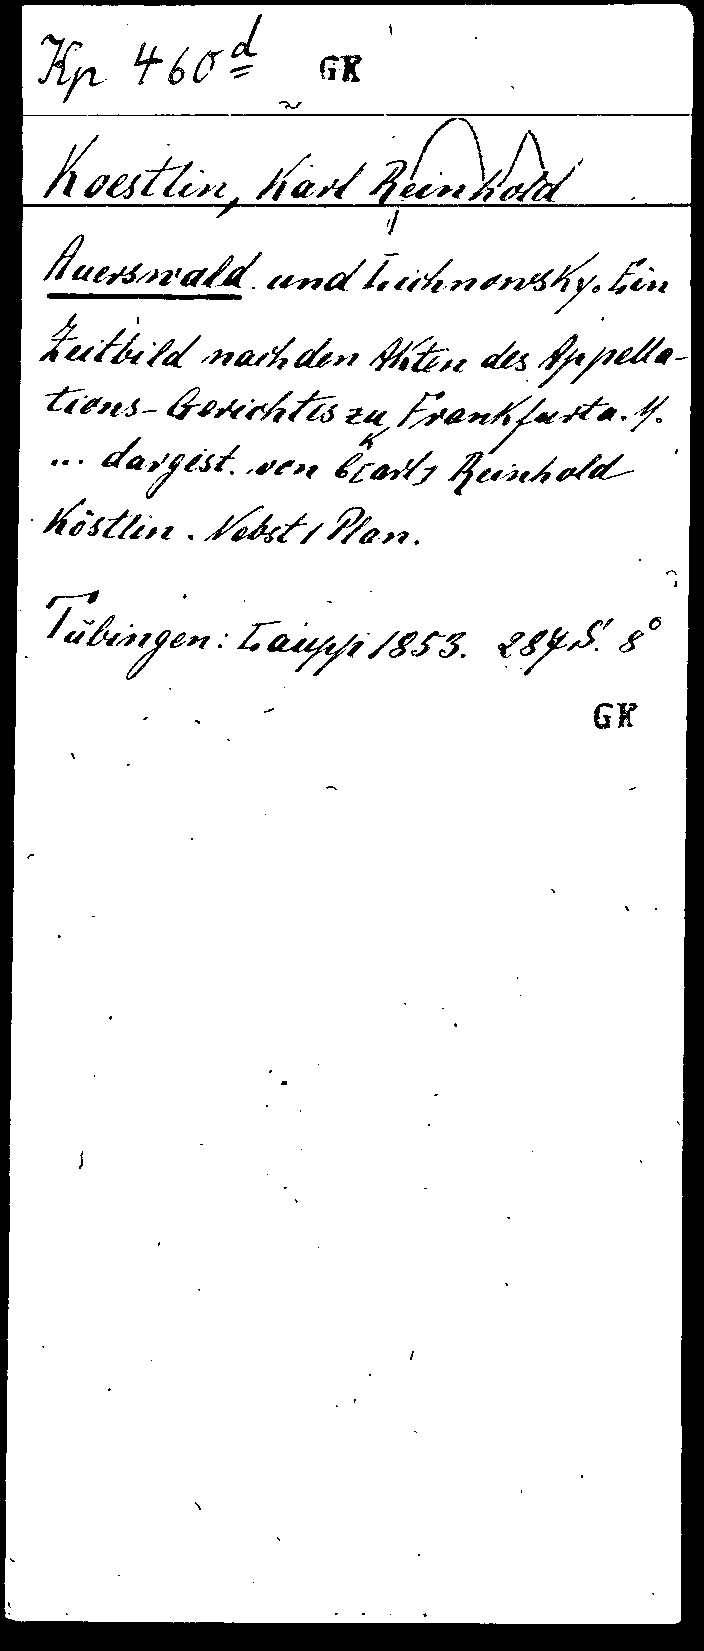 Kp 460d GK
Koestlin, Karl Reinhold
Auerswald und Lichnowsky. Ein
Zeitbild nach den Akten des Appella-
tions-Gerichtes zu Frankfurt a. M.
... dargest. von C[arl] Reinhold
Köstlin. Nebst 1 Plan.
Tübingen: Laupp 1853. 287 S. 8°
GK